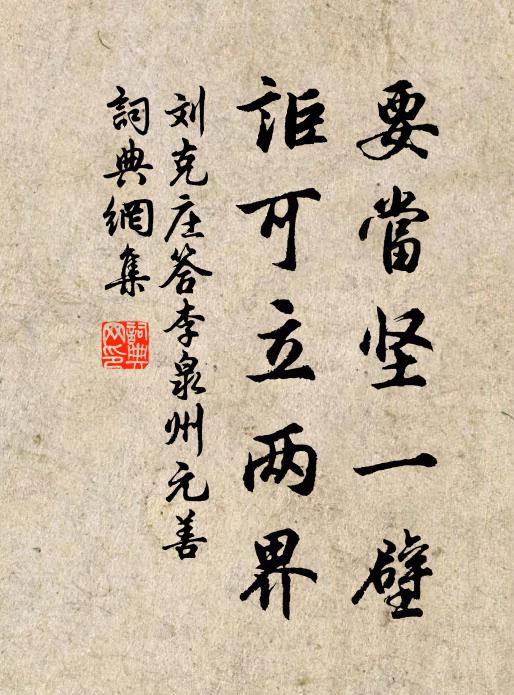 要當坚一壁
詎可立两界
刘克庄答李泉州元善
詞典網集
詞典网印